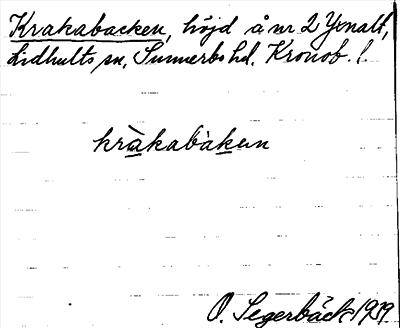 Krakabacken, höjd å nr 2 Yxnalt,
Lidhults sn, Sunnerbo hd. Kronob. l.
kràkabàken
O. Segerbäck 1939